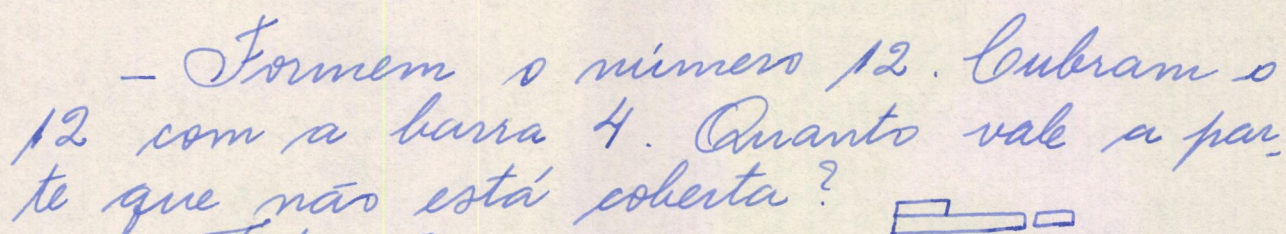 - Formem o número 12. Cubram o
12 com a barra 4. Quanto vale a par-
te que não está coberta?